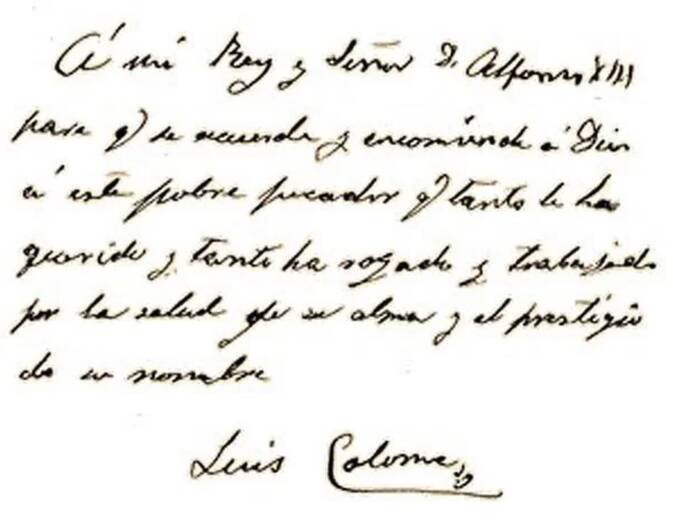 Á mi Rey y Señor D. Alfonso XIII
para q) se acuerde y encomiende á Dios
á este pobre pecador q) tanto le ha
querido y tanto ha rogado y trabajado
por la salud de su alma y el prestigio
de su nombre
Luis Coloma